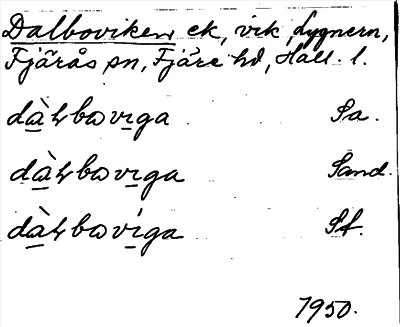 Dalboviken ek, vik, Lygnern,
Fjärås sn, Fjäre hd, Hall. l.
dàłbωviga Sa.
dàłbωviga Sand.
dàłbωvíga Sf.
1950.